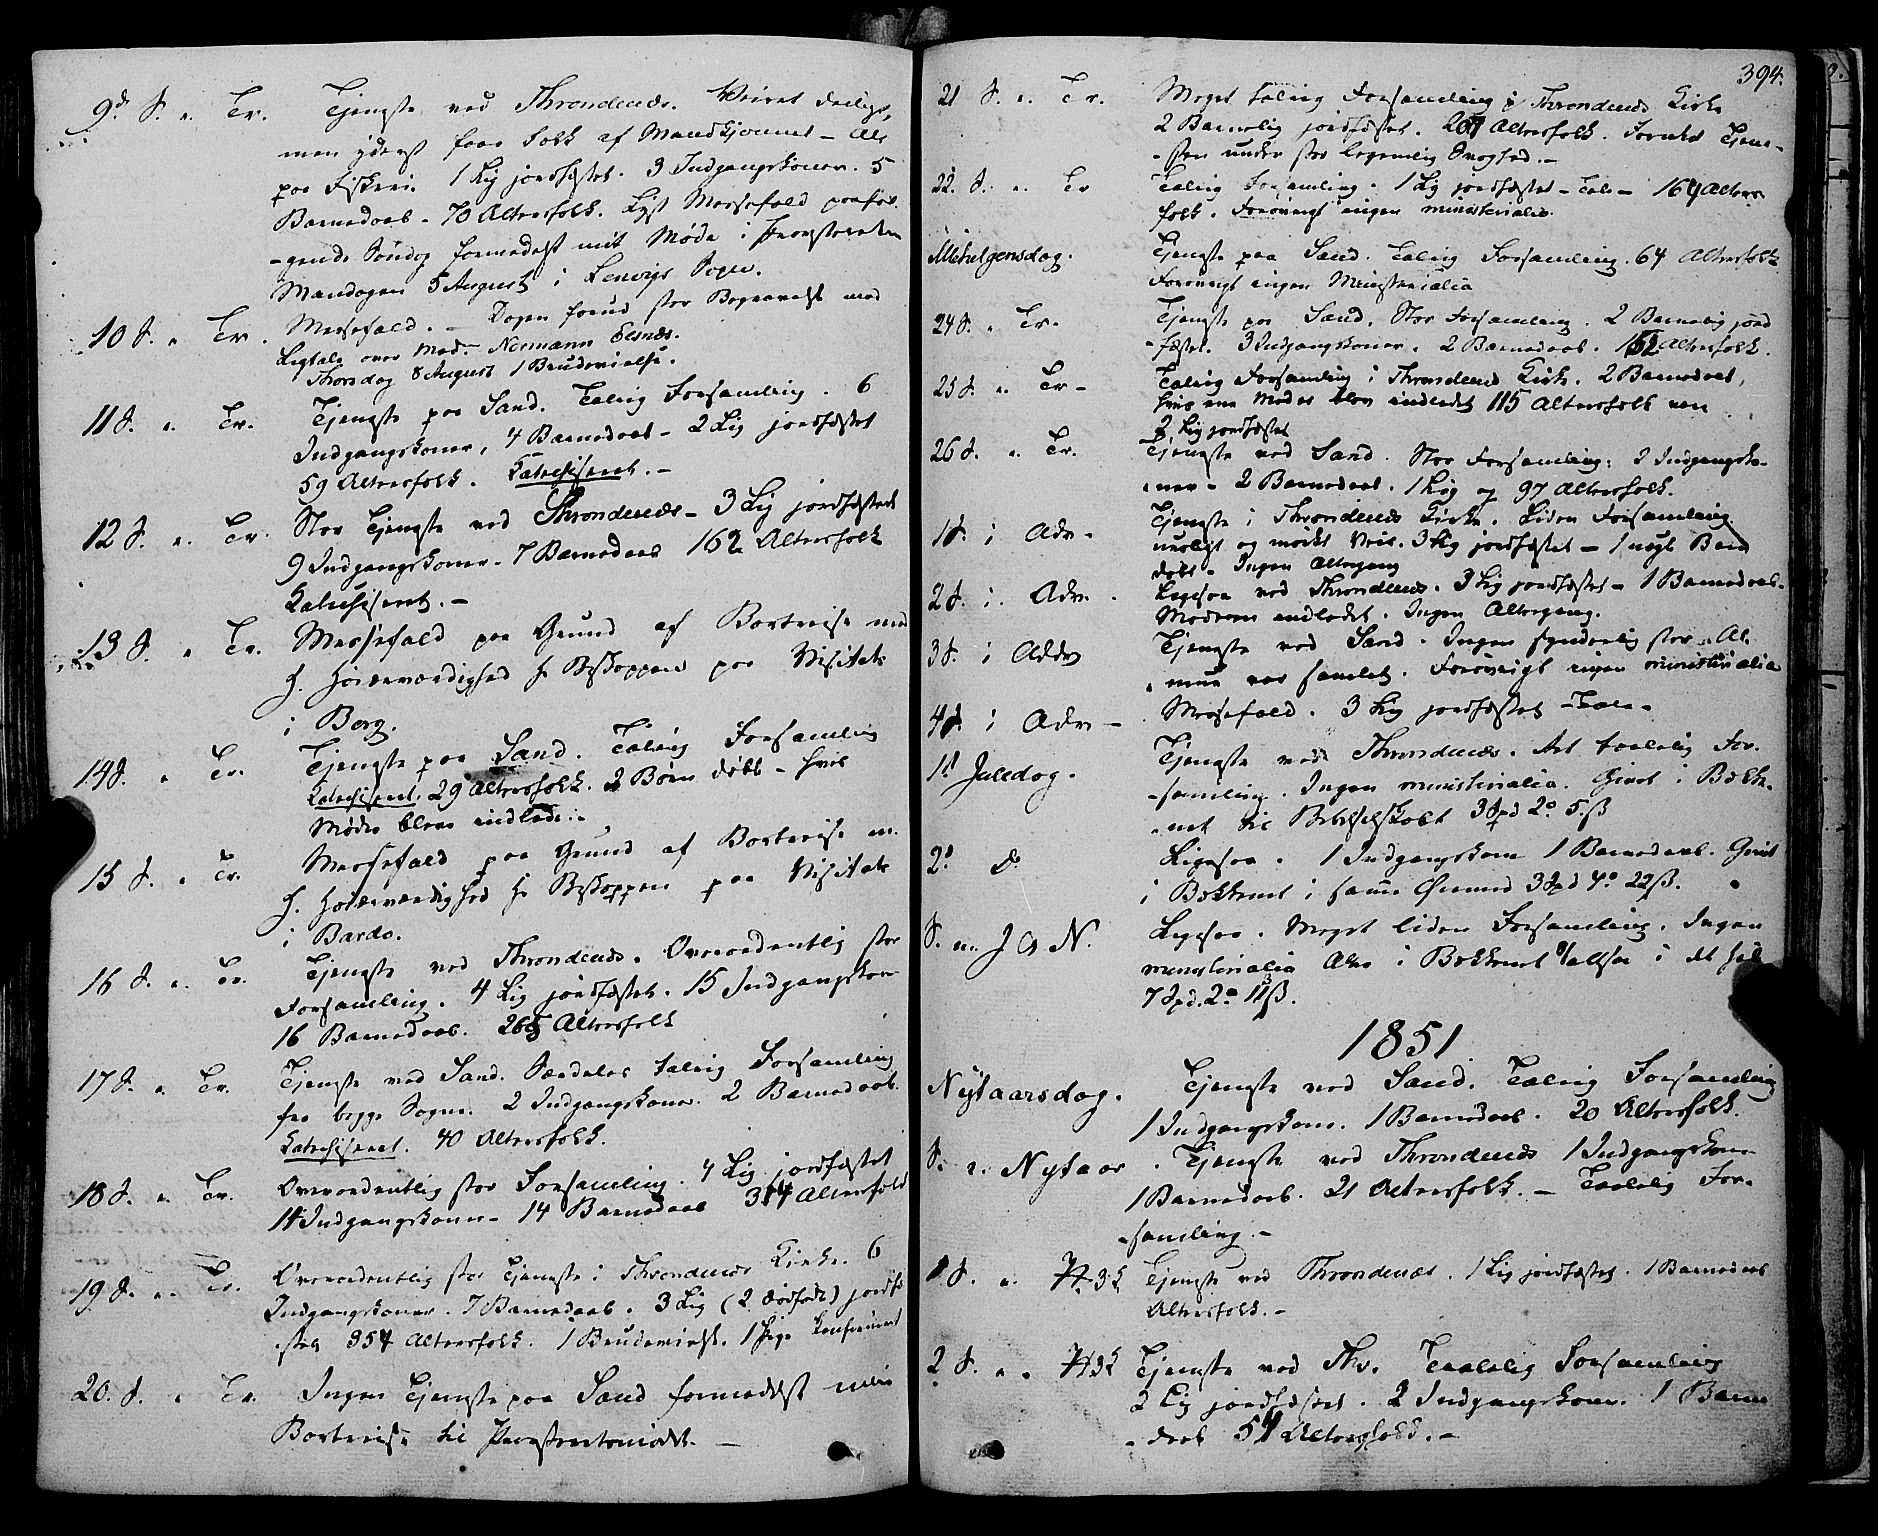 9d. S. e. Tr. Tjeneste ved Throndenæs. Veiret deiligt,
men yderst faae Folk af Mandkjønnet - Alt
paa Fiskeri. 1 Lig jordfæstet. 3 Indgangskoner. 5
Barnedaab - 70 Altersfolk. Lyst Messefald paaføl-
-gende Søndag formedelst mit Møde i Provsteretten
Mandagen 5 August i Lenvigs Sogn.
10 S. e. Tr. Messefald. - Dagen forud stor Begravelse med
Ligtale over Mad. Normann Elsnæs.
Thorsdag 8 August 1 Brudevielse.
11 S. e. Tr. Tjeneste paa Sand. Talrig Forsamling. 6
Indgangskoner, 4 Barnedaab - 2 Lig jordfæstet
59 Altersfolk. Katechiseret. -
12 S. e. Tr. Stor Tjeneste ved Throndenæs - 3 Lig jordfæstede
9 Indgangskoner - 7 Barnedaab 162 Altersfolk
Katechiseret. -
13 S. e. Tr. Messefald paa Grund af Bortreise med
H. Høiærværdighed Hr Biskoppen paa Visitats
i Borg.
14 S. e. Tr. Tjeneste paa Sand. Talrig Forsamling
Katechiseret. 29 Altersfolk. 2 Børn døbt - hvis
Mødre bleve indledede.
15 S. e. Tr. Messefald paa Grund af Bortreise m.
H. Høiærværdighed Hr Biskoppen paa Visitats
i Bardo.
16 S. e. Tr. Tjeneste ved Throndenæs. Overordentlig stor
Forsamling. 4 Lig jordfæstet. 15 Indgangskoner
16 Barnedaab. 265 Altersfolk
17 S. e. Tr. Tjeneste ved Sand. Særdeles talrig Forsamling
fra begge Sogne. 2 Indgangskoner. 2 Barnedaab.
Katechiseret. 40 Altersfolk.
18 S. e. Tr. Overordentlig stor Forsamling. 4 Lig jordfæstet
14 Indgangskoner - 14 Barnedaab 314 Altersfolk
19 S. e. Tr. Overordentlig stor Tjeneste i Throndenæs Kirke. 6
Indgangskoner. 7 Barnedaab. 3 Lig (2 dødfødt) jordfæ-
-stet 354 Altersfolk. 1 Brudevielse. 1 Pige konfirmeret
20. S. e. Tr. Ingen Tjeneste paa Sand formedelst min
Bortreise til Provstemødet. -
394.
21 S. e. Tr. Meget talrig Forsamling i Throndenæs Kirke
2 Barnelig jordfæstet. 207 Altersfolk. Forrettet Tjene-
-sten under stor legemlig Svaghed. -
22. S. e. Tr Talrig Forsamling. 1 Lig jordfæstet - Tale - 164 Alters-
folk. Forøvrigt ingen ministerialia.
Allehelgensdag. Tjeneste paa Sand. Talrig Forsamling. 64 Altersfolk
Forøvrigt ingen Ministerialia
24 S. e. Tr. Tjeneste paa Sand. Stor Forsamling. 2 Barnelig jord
-fæstet. 3 Indgangskoner. 2 Barnedaab. 152 Altersfolk.
25 S. e. Tr - Talrig Forsamling i Throndenæs Kirke. 2 Barnedaab,
hvis ene Moder blev indledet 115 Altersfolk
2 Lig jordfæstet
26 S. e. Tr. Tjeneste ved Sand. Stor Forsamling: 2 Indgangsko-
-ner - 2 Barnedaab. 1 Lig og 97 Altersfolk.
1 S. i Adv - Tjeneste i Throndenæs Kirke. Liden Forsamling.
uroligt og mørkt Veir. 3 Lig jordfæstet - 1 uægte Barn
døbt - Ingen Altergang
2 S. i. Adv. Ligesaa ved Throndenæs. 3 Lig jordfæstet - 1 Barnedaab -
Moderen indledet. Ingen Altergang.
3 S. i Adv Tjeneste ved Sand. Ingen synderlig stor Al-
-mue var samlet. Forøvrigt ingen ministerialia
4 S. i Adv - Messefald. 3 Lig jordfæstet - Tale -
1ste Juledag. Tjeneste ved Throndenæs. Ret taalelig For-
-samling. Ingen ministerialia. Givet i Bække-
-net til Bibelselskabet 3 Spd 2 5 ß
2. d. Ligesaa. 1 Indgangskone 1 Barnedaab. Givet
i Bækkenet i samme Øiemed 3 Spd 4 22 ß.
S. m. J & N. Ligesaa. Meget liden Forsamling. Ingen
ministerialia Altsaa i Bækkenet altsaa i det hele
7 Spd. 2 11 ß.
1851
Nytaarsdag. Tjeneste ved Sand. Talrig Forsamling
1 Indgangskone. 1 Barnedaab. 20 Altersfolk.
S. e. Nytaar. Tjeneste ved Throndenæs 1 Indgangskone
1 Barnedaab. 21 Altersfolk. - Taalelig For-
-samling. -
1 S. e. H3K Tjeneste ved Throndenæs. 1 Lig jordfæstet. 1 Barnedaab
Altersfolk. -
2 S. e. H3K Tjeneste ved Thr. Taalelig Forsamling
2 Lig jordfæstet. 2 Indgangskoner. 1 Barne
-daab 54 Altersfolk. -